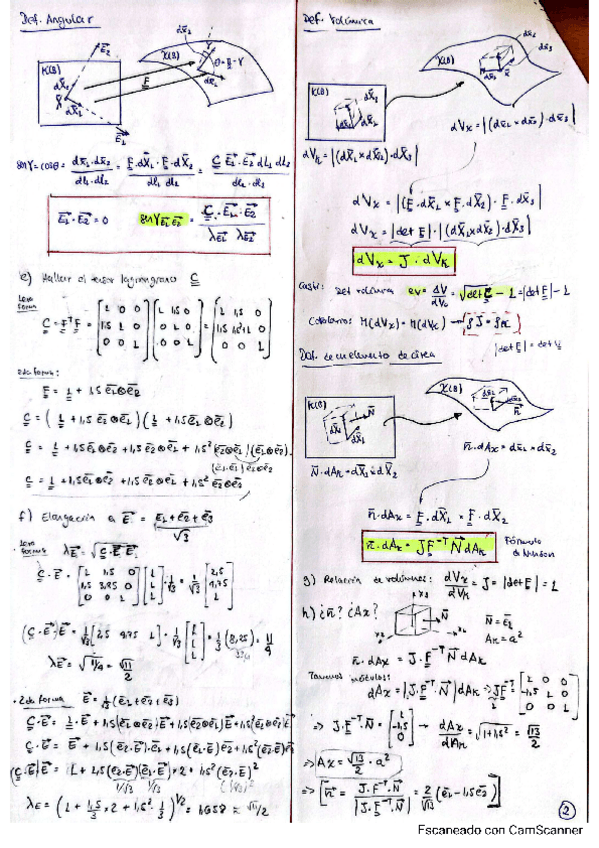 Def. Angular
K(B)
χ(B)
E⃗2
dX̄2
X̄
dX̄1
E⃗1
F
dx̄2
γ
θ = π/2 - γ
dx̄1
sen γ = cos θ = dx̄1·dx̄2 / dl1·dl2 = F·dX̄1·F·dX̄2 / dl1 dl2 = C E⃗1·E⃗2 dL1 dL2 / dl1·dl2
E⃗1·E⃗2 = 0 sen γ E⃗1E⃗2 = C·E⃗1·E⃗2 / λE⃗1 λE⃗2
e) Hallar el tensor lagrangiano C
1era forma
C = F^T F = [1 0 0; 1,5 1 0; 0 0 1] [1 1,5 0; 0 1 0; 0 0 1] = [1 1,5 0; 1,5 1,5²+1 0; 0 0 1]
2da forma:
F = 1 + 1,5 ē1⊗ē2
C = (1 + 1,5 ē2⊗ē1)(1 + 1,5 ē1⊗ē2)
C = 1 + 1,5 ē1⊗ē2 + 1,5 ē2⊗ē1 + 1,5² (ē2⊗ē1)(ē1⊗ē2)
(ē1·ē1) ē2⊗ē2
C = 1 + 1,5 ē1⊗ē2 + 1,5 ē2⊗ē1 + 1,5² ē2⊗ē2
f) Elongación a E⃗ = ē1+ē2+ē3 / √3
1era forma λE⃗ = √C·E⃗·E⃗
C·E⃗ = [1 1,5 0; 1,5 3,25 0; 0 0 1] [1; 1; 1]·1/√3 = 1/√3 [2,5; 4,75; 1]
(C·E⃗)·E⃗ = 1/√3 [2,5 4,75 1]·1/√3 [1; 1; 1] = 1/3 (8,25) = 11/4
λE⃗ = √11/4 = √11/2
2da forma E⃗ = 1/√3 (ē1+ē2+ē3)
C·E⃗ = 1·E⃗ + 1,5(ē1⊗ē2)E⃗ + 1,5(ē2⊗ē1)E⃗ + 1,5²(ē2⊗ē2)E⃗
C·E⃗ = E⃗ + 1,5(ē2·E⃗)·ē1 + 1,5(ē1·E⃗)ē2 + 1,5²(ē2·E⃗)ē2
(C·E⃗)E⃗ = 1 + 1,5(ē2·E⃗)(ē1·E⃗)×2 + 1,5²(ē2·E⃗)²
1/√3 1/√3 (1/√3)²
λE = (1 + 1,5/3 ×2 + 1,5²·1/3)^1/2 = 1,658 = √11/2
Def. Volúmica
K(B)
χ(B)
dX̄3
dx̄3
dx̄2
dx̄1
dVx = |(dx̄1×dx̄2)·dx̄3|
dVk = |(dX̄1×dX̄2)·dX̄3|
dVx = |(F·dX̄1×F·dX̄2)·F·dX̄3|
dVx = |det F|·|(dX̄1×dX̄2)·dX̄3|
dVx = J·dVk
Def volúmica ev = ΔV/dVk = √det C - 1 = |det F| - 1
Corolarios: M(dVx) = M(dVk) → ρJ = ρk
|det F| = det U
Def. de un elemento de área
K(B)
χ(B)
N⃗
n̄
N̄·dAk = dX̄1×dX̄2
n̄·dAx = dx̄1×dx̄2
n̄·dAx = F·dX̄1 × F·dX̄2
n̄·dAx = J F^-T N⃗ dAk
Fórmula de Nanson
g) Relación de volúmenes: dVx/dVk = J = |det F| = 1
h) ¿n̄? ¿Ax?
N⃗
N̄ = ē1
Ak = a²
n̄·dAx = J·F^-T·N⃗ dAk
Tomamos módulos:
dAx = |J·F^-T·N⃗| dAk → JF^-T = [1 0 0; -1,5 1 0; 0 0 1]
⇒ J·F^-T·N⃗ = [1; -1,5; 0] → dAx/dAk = √1+1,5² = √13/2
⇒ Ax = √13/2·a²
⇒ [n̄ = J·F^-T·N⃗ / |J·F^-T·N⃗| = 2/√13 (ē1 - 1,5 ē2)]
2
Escaneado con CamScanner